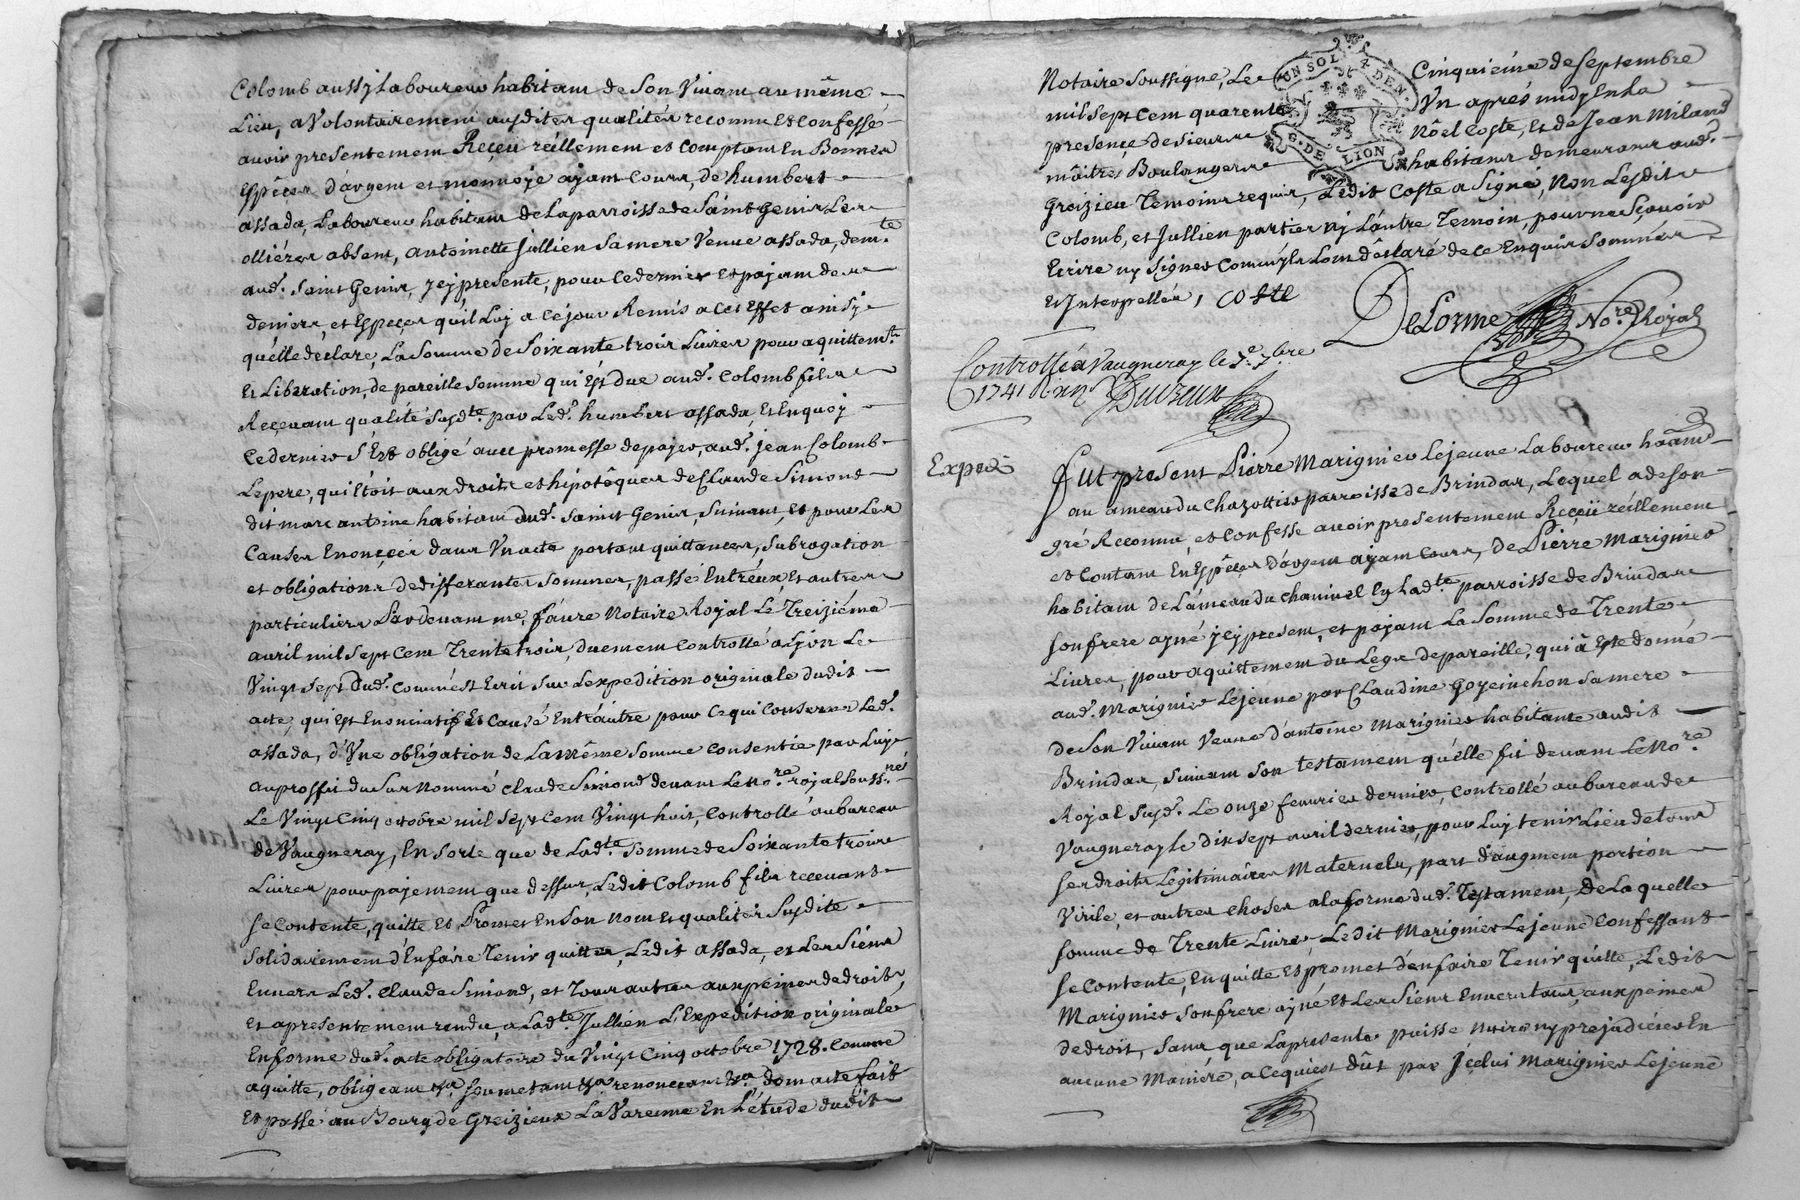 Colomb aussy Laboureur habitant de son vivant au même
Lieu, a volontairement ausdites qualités reconnu et confessé
avoir presentement Reçeu réellement et comptant En Bonnes
Espêces d'argent et monnoye ayant cours, de humbert
assada, Laboureur habitant de la parroisse de saint Genis Les
olliéres absent, antoinette Jullien sa mere veuve assada, demte
aud. saint Genis, icy presente, pour ce dernier et payant de ses
deniers, et Espeçes qu'il Luy a ce jour Remis a cet Effet ainsy
qu'elle declare, La somme de soixante trois Livres pour aquittemt
et Liberation, de pareille somme qui Est due aud. Colomb fils
Reçevant qualité susdte par Led. humbert assada, et En quoy
ce dernier s'est obligé avec promesse de payer, aud. jean Colomb
Le pere, qui Etoit aux droits et hipotêques de Claude Simond
dit marc antoine habitant aud. saint Genis, suivant, et pour Les
causes Enonçées dans Un acte portant quittances, subrogation
et obligations de differantes sommes, passé Entr'eux et autres
particuliers Pardevant me. faure Notaire Royal Le Treiziéme
avril mil sept cent Trente trois, duement Controllé a Lyon Le
vingt sept Dud. comme est Ecrit sur L'expedition originale dudit
acte, qui est Enonciatif et Causé Entr'autre pour ce qui conserne Led.
assada, d'Une obligation de La même somme consentie par Luy
au proffit du sur nommé claude Simond devant Le Nore royal soussné
Le Vingt Cinq octobre mil sept cent Vingt huit, Controllé au bureau
de Vaugneray, En sorte que de Ladte somme de soixante trois
Livres pour payement que dessus, Ledit Colomb fils recevant
se Contente, quitte et Promet En son nom et qualités susdite
solidairement d'En faire Tenir quittes, Ledit assada, et Les siens
Envers Led. Claude Simond, et Tous autres aux peines de droit,
et a presentement rendu, a Ladte Jullien L'Expedition originale
En forme dud. acte obligatoire du Vingt Cinq octobre 1728. comme
aquitté, obligeant &a soumettant &a renonceant &a dont acte fait
et passé au Bourg de Greizieux La Varenne En L'étude dudit
Notaire soussigné, Le Cinquiéme de septembre
mil sept cent quarente Un aprés midy En La
presençe de sieurs Nôel Coste, et de Jean Miland
mâitres Boulangers habitans demeurans aud.
Greizieu Temoins requis, Ledit Coste a signé, Non Lesdits
Colomb, et Jullien parties ny L'autre Temoin, pour ne sçavoir
Ecrire ny signer comm'yls L'ont dêclaré de ce Enquis sommés
et Interpellés, Coste
Delorme Nore Royal
Controllé a Vaugneray le 7e 7bre
1741
UN SOL 4 DEN.
G. DE LION
Exped
Fut présent Pierre Marignier Lejeune Laboureur habitant
au ameau du Chazottier parroisse de Brindas, Lequel a de son
gré Reconnu, et confesse avoir presentement Reçeü réellement
et Contant En Espêces d'argent ayant cours, de Pierre Marignier
habitant de L'ameau du Chaminel En Ladte parroisse de Brindas
son frere ayné icy present, et payant La somme de Trente
Livres, pour aquittement du Legs de pareille, qui à Eté donné
aud. Marignier Lejeune par Claudine Goyeinchon sa mere
de son Vivant Veuve d'antoine Marignier habitante audit
Brindas, suivant son testament qu'elle fit devant Le Nore
Royal susd. Le onze fevrier dernier, Controllé au bureau de
Vaugneray le dix sept avril dernier, pour Luy tenir Lieu de tous
ses droits Legitimaires Maternels, part d'augment portion
Virile, et autres choses a la forme dud. Testament, De Laquelle
somme de Trente Livres Ledit Marignier Lejeune Confessant
se Contente, En quitte et promet d'en faire Tenir quitte, Ledit
Marignier son frere ayné et Les siens Envers tous, aux peines
de droit, sans que La presente puisse nuire ny prejudicier En
aucune Maniére, a ce qui est dût par Jcelui Marignier Lejeune